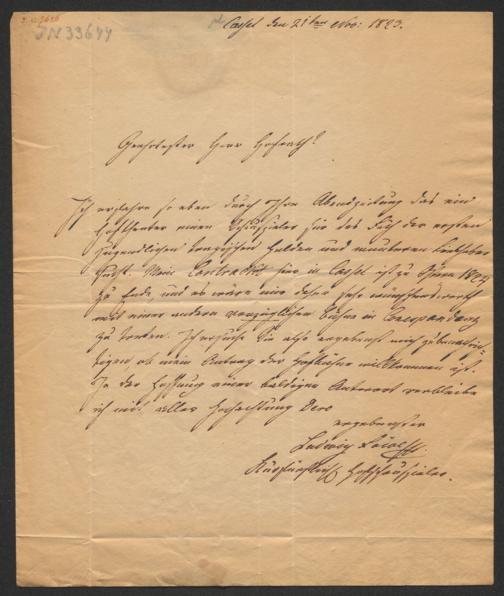 JN 33644
Cassel den 21ten Nov: 1823.
Geehrtester Herr Hofrath!
Ich erfahre so eben durch Ihre Abendzeitung das ein
Hoftheater einen Schauspieler für das Fach der ersten
jugendlichen tragischen Helden und munteren Liebhaber
sucht. Mein Contract hier in Cassel ist zu 1824
zu Ende, und es wäre mir daher sehr wünschenswerth
mit einer andern vorzüglichen Bühne in Correspondenz
zu treten. Ich ersuche Sie also ergebenst mich zu benachrich-
tigen ob mein Antrag der Hofbühne willkommen ist.
In der Hoffnung einer baldigen Antwort verbleibe
ich mit aller Hochachtung Dero
ergebenster
Ludwig Löwe
Kurfürstl. Hofschauspieler.